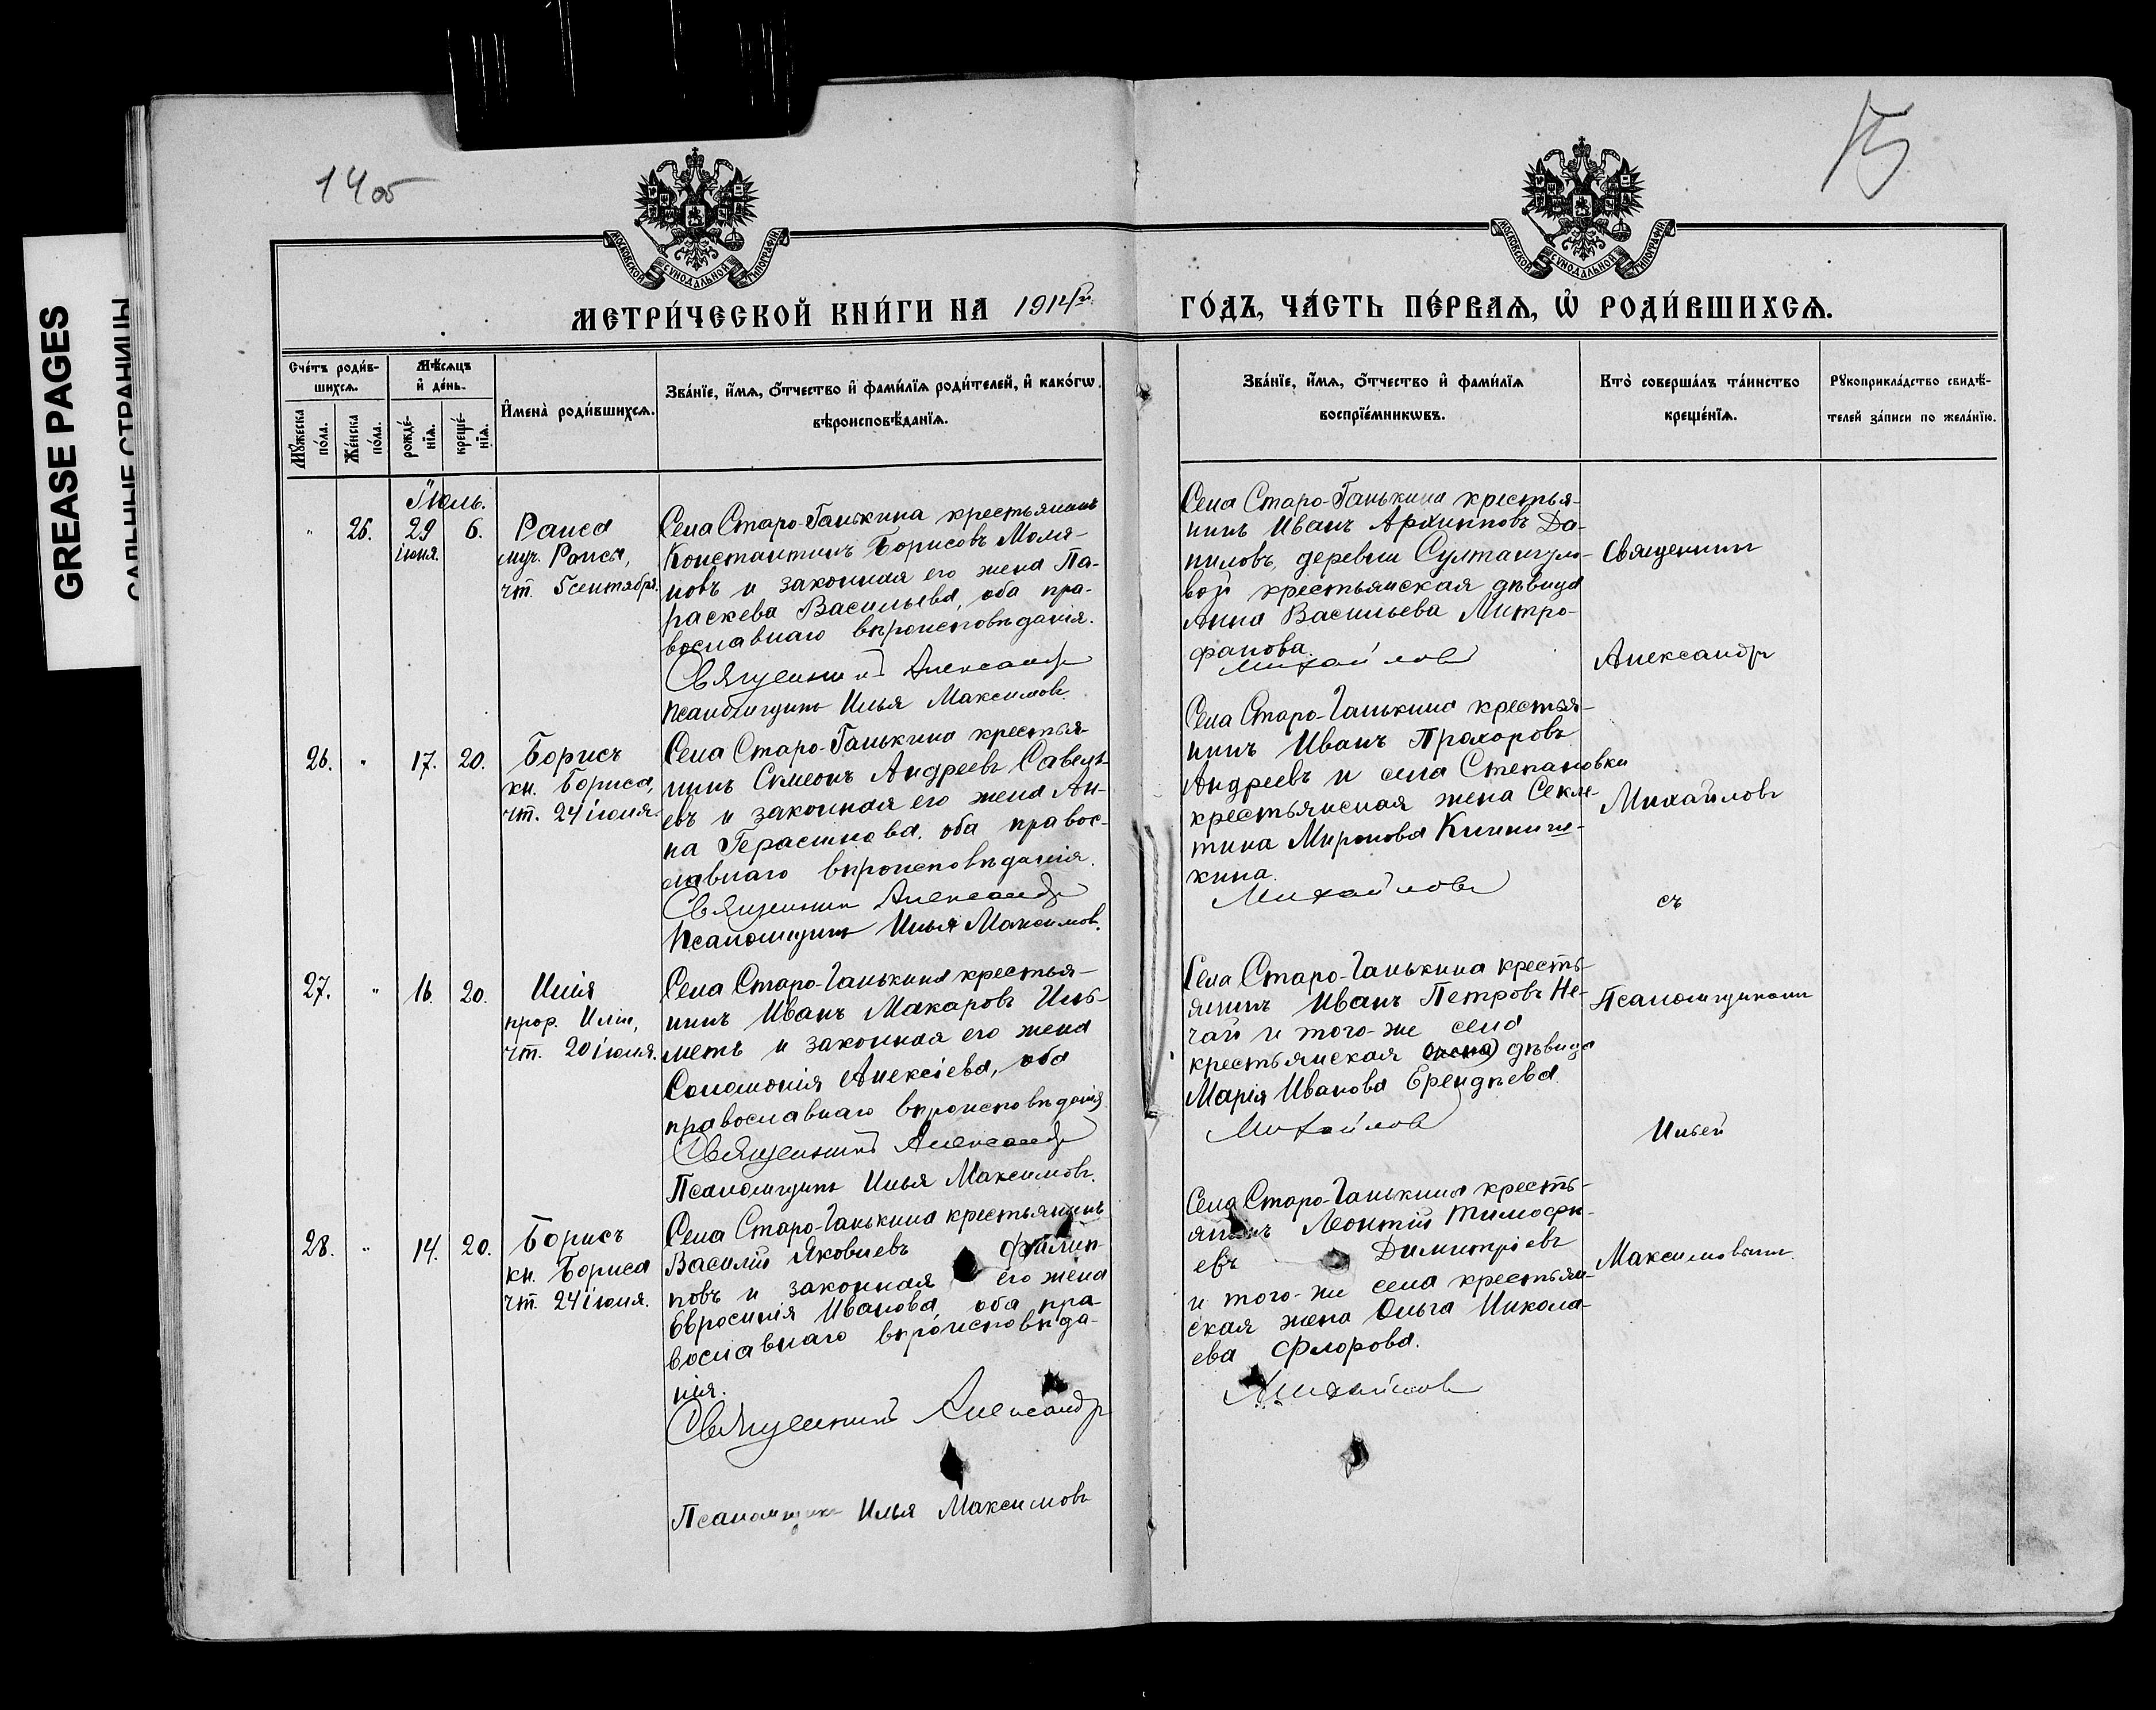 GREASE PAGES
САЛЬНЫЕ СТРАНИЦЫ
14 об
15
МОСКОВСКОЙ СѴНОДАЛЬНОЙ ТИПОГРАФІИ
МОСКОВСКОЙ СѴНОДАЛЬНОЙ ТИПОГРАФІИ
МЕТРИ́ЧЕСКОЙ КНИ́ГИ НА 1914й
ГО́ДЪ, ЧА́СТЬ ПЕ́РВАѦ, Ѡ҆ РОДИ́ВШИХСѦ.
Сче́тъ роди́в-
шихсѧ.
Мꙋ́жеска по́ла.
Же́нска по́ла.
Мѣ́сѧцъ
и҆ де́нь.
рожде́-
нїѧ.
креще́-
нїѧ.
И҆мена̀ роди́вшихсѧ.
Зва́нїе, и҆́мѧ, ѻ҆́тчество и҆ фами́лїѧ роди́телей, и҆ како́гѡ
вѣроисповѣ́данїѧ.
Зва́нїе, и҆́мѧ, ѻ҆́тчество и҆ фами́лїѧ
воспрїе́мникѡвъ.
Кто̀ соверша́лъ та́инство
креще́нїѧ.
Рꙋкоприкла́дство свидѣ́-
телей за́писи по жела́нїю.
Іюль.
" 26. 29 іюня. 6.
Раиса
муч. Раисы,
чт. 5 сентября.
Села Старо-Ганькина крестьянинъ
Константинъ Борисовъ Моля-
новъ и законная его жена Па-
раскева Васильева, оба пра-
вославнаго вѣроисповѣданія.
Священникъ Александр
Псаломщикъ Илья Максимовъ.
Села Старо-Ганькина крестья-
нинъ Иванъ Архиповъ Да-
ниловъ, деревни Султангуло-
вой крестьянская дѣвица
Анна Васильева Митро-
фанова.
Михайлов
Священник
Александр
26. " 17. 20.
Борисъ
кн. Бориса,
чт. 24 іюля.
Села Старо-Ганькина крестья-
нинъ Симеонъ Андреевъ Савель-
евъ и законная его жена Ан-
на Герасимова, оба правос-
лавнаго вѣроисповѣданія.
Священникъ Александр
Псаломщикъ Илья Максимов.
Села Старо-Ганькина крестья-
нинъ Иванъ Прохоровъ
Андреевъ и села Степановки
крестьянская жена Секле-
тина Миронова
кина.
Михайловъ
Михайловъ
съ
27. " 16. 20.
Илія
прор. Иліи,
чт. 20 іюля.
Села Старо-Ганькина крестья-
нинъ Иванъ Макаровъ Иль-
метъ и законная его жена
Соломонія Алексіева, оба
православнаго вѣроисповѣданія
Священникъ Александр
Псаломщикъ Илья Максимовъ.
Села Старо-Ганькина кресть-
янинъ Иванъ Петровъ Не-
чай и того-же села
крестьянская (жена) дѣвица
Марія Иванова Ерендѣева.
Михайлов
Псаломщиком
Ильей
28. " 14. 20.
Борисъ
кн. Бориса
чт. 24 іюля.
Села Старо-Ганькина крестьянинъ
Василій Яковлевъ Филип-
повъ и законная его жена
Евросинія Иванова, оба пра-
вославнаго вѣроисповѣда-
нія.
Священникъ Александр
Псаломщикъ Илья Максимовъ
Села Старо-Ганькина кресть-
янинъ Леонтій Тимофѣ-
евъ Димитріевъ
и того-же села крестьян-
ская жена Ольга Никола-
ева Флорова.
Михайлов
Максимовымъ.